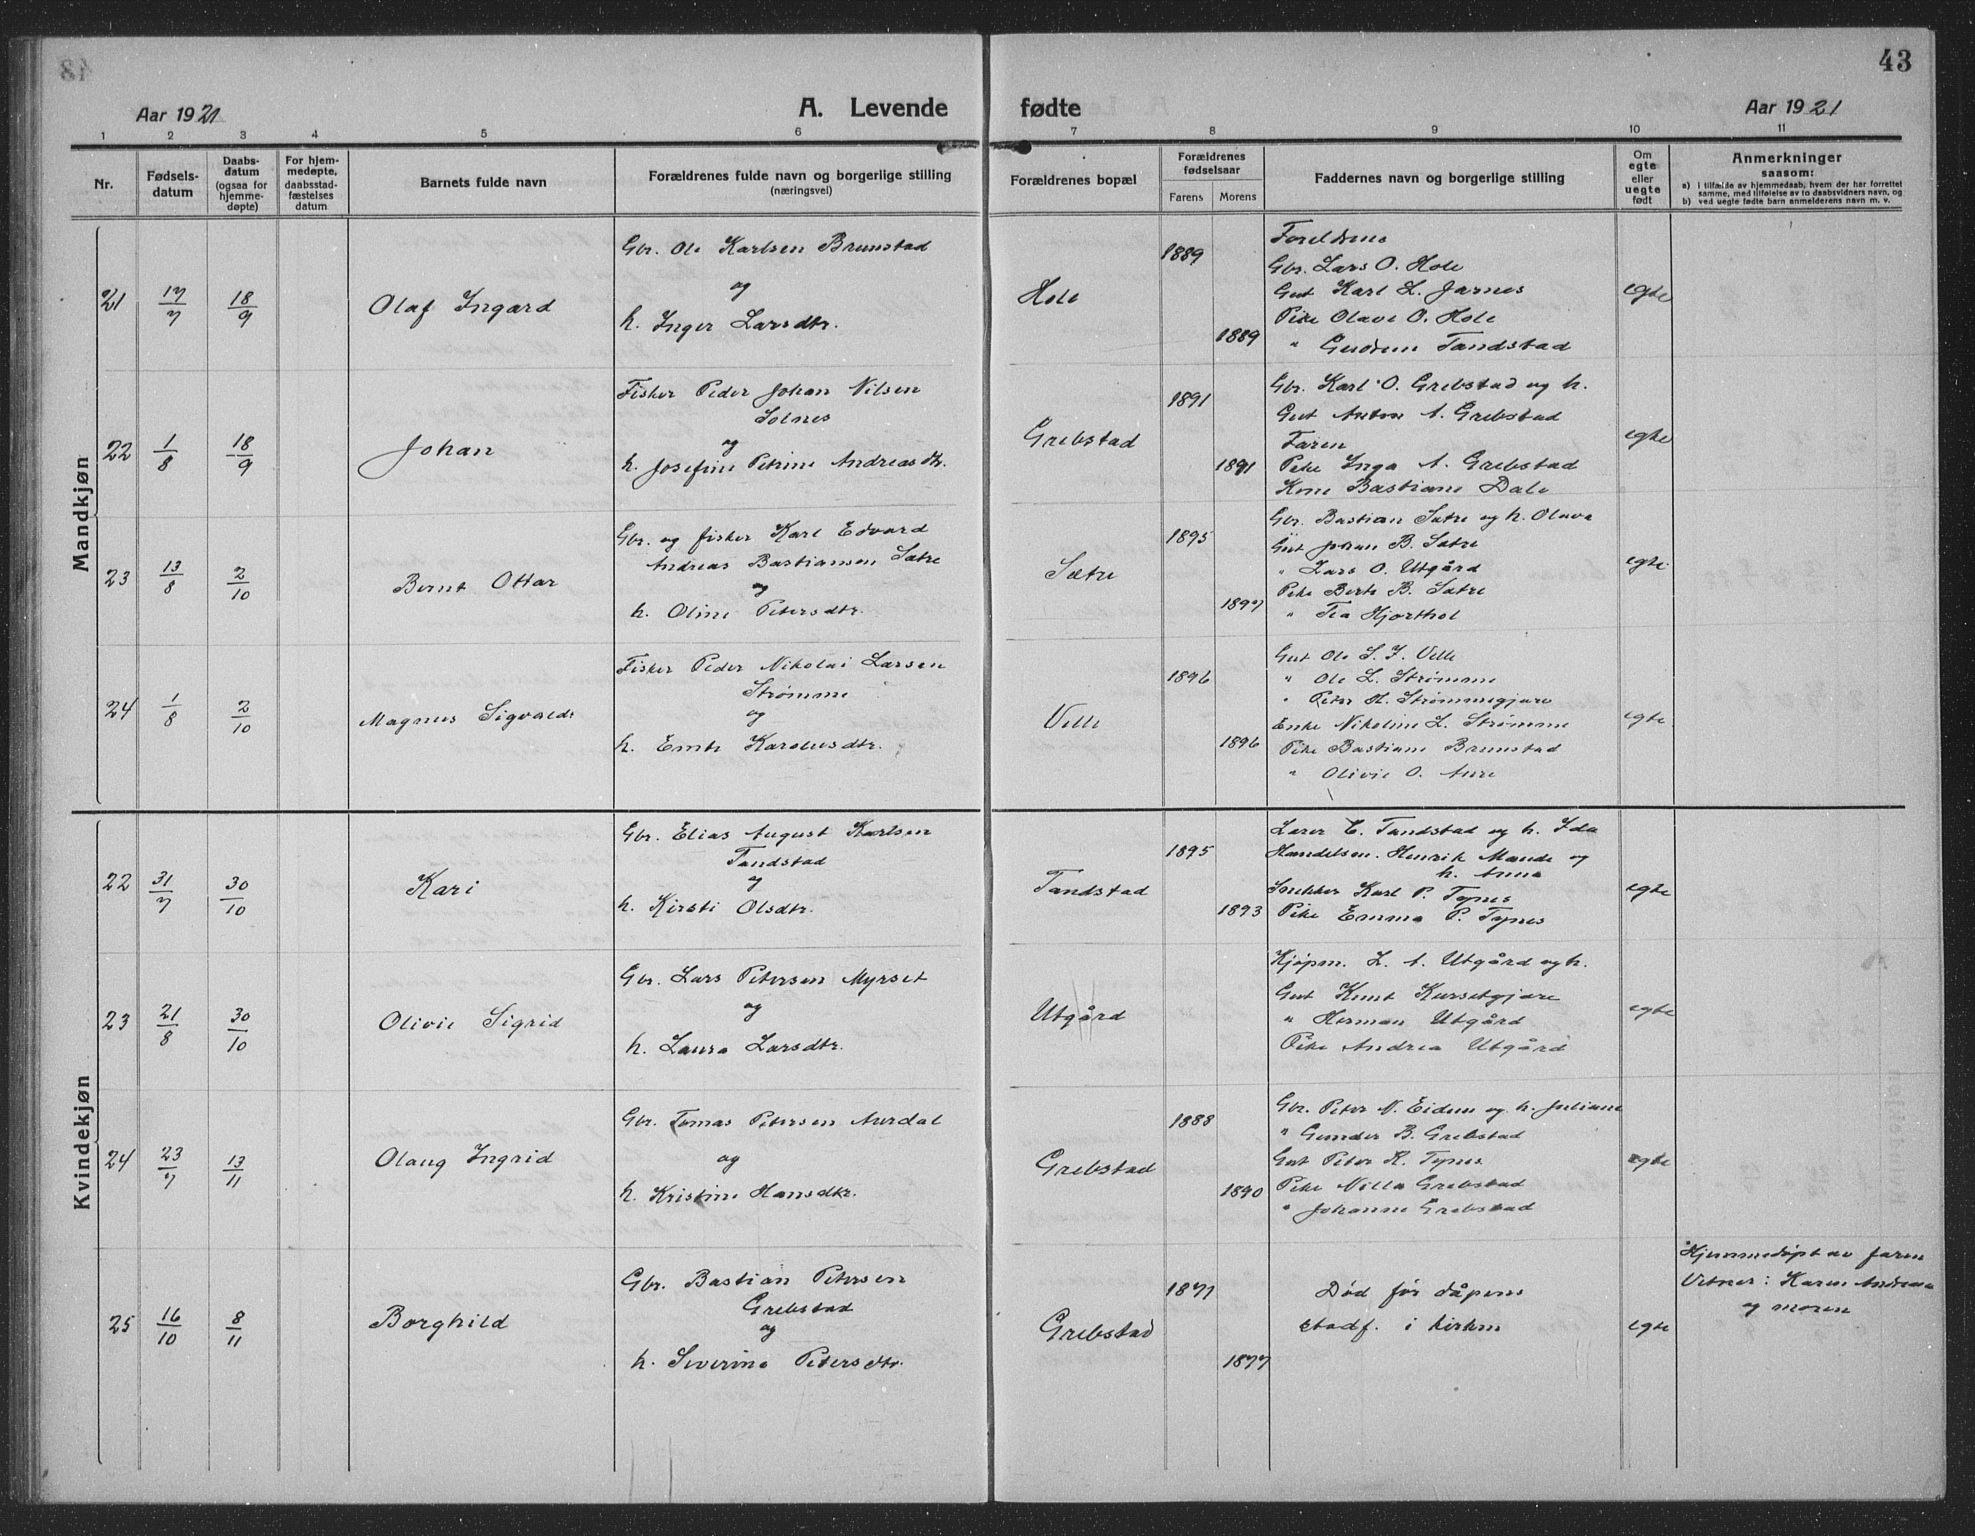 43
Aar 1921
A. Levende fødte
Aar 1921
1 2 3 4 5 6 7 8 9 10 11
Nr.
Fødsels-
datum
Daabs-
datum
(ogsaa for
hjemme-
døpte)
For hjem-
medøpte,
daabsstad-
fæstelses
datum
Barnets fulde navn
Forældrenes fulde navn og borgerlige stilling
(næringsvei)
Forældrenes bopæl
Forældrenes
fødselsaar
Farens Morens
Faddernes navn og borgerlige stilling
Om
egte
eller
uegte
født
Anmerkninger
saasom:
a) i tilfælde av hjemmedaab, hvem der har forrettet
samme, med tilføielse av to daabsvidners navn, og
b) ved uegte fødte barn anmelderens navn m. v.
Mandkjøn
21 17/7 18/9 Olaf Ingard
Gbr. Ole Karlsen Brunstad
og
h. Inger Larsdtr.
Hole
1889
1889
Foreldrene
Gbr. Lars O. Hole
Gut Karl L. Jarnes
Pike Olave O. Hole
" Gudrun Tandstad
egte
22 1/8 18/9 Johan
Fisker Peder Johan Nilsen
Solnes
og
h. Josefine Petrine Andreasdtr.
Grebstad
1891
1891
Gbr. Karl O. Grebstad og h.
Gut Anton A. Grebstad
Faren
Pike Inga A. Grebstad
Kone Bastiane Dale
egte
23 13/8 2/10 Bernt Ottar
Gbr. og fisker Karl Edvard
Andreas Bastiansen Sætre
og
h. Oline Petersdtr.
Sætre
1895
1897
Gbr. Bastian Sætre og h. Olava
Gut Johan B. Sætre
" Lars O. Utgård
Pike Berte B. Sætre
" Tea Hjorthol
egte
24 1/8 2/10 Magnus Sigvald
Fisker Peder Nikolai Larsen
Strømme
og
h. Emte Karolusdtr.
Velle
1896
1896
Gut Ole S. J. Velle
" Ole L. Strømme
" Peter H. Strømmegjære
Enke Nikoline L. Strømme
Pike Bastiane Brunstad
" Olivie O. Aure
egte
Kvindekjøn
22 31/7 30/10 Kari
Gbr. Elias August Karlsen
Tandstad
og
h. Kirsti Olsdtr.
Tandstad
1895
1893
Lærer C. Tandstad og h. Ida
Handelsm. Henrik Mande og
h. Anna
Snekker Karl P. Tynes
Pike Emma P. Tynes
egte
23 21/8 30/10 Olivie Sigrid
Gbr. Lars Petersen Myrset
og
h. Laura Larsdtr.
Utgård
Kjøpm. L. A. Utgård og h.
Gut Knut Kursetgjære
" Herman Utgård
Pike Andrea Utgård
egte
24 23/7 13/11 Olaug Ingrid
Gbr. Tomas Petersen Aurdal
og
h. Kristine Hansdtr.
Grebstad
1888
1890
Gbr. Peter N. Eidem og h. Juliane
" Gunder B. Grebstad
Gut Peter K. Tynes
Pike Nilla Grebstad
" Johanne Grebstad
egte
25 16/10 8/11 Borghild
Gbr. Bastian Petersen
Grebstad
og
h. Severine Petersdtr.
Grebstad
1871
1877
Død før dåpens
stadf. i kirken
egte
Hjemmedøpt av faren
Vitner: Karen Andrea
og moren